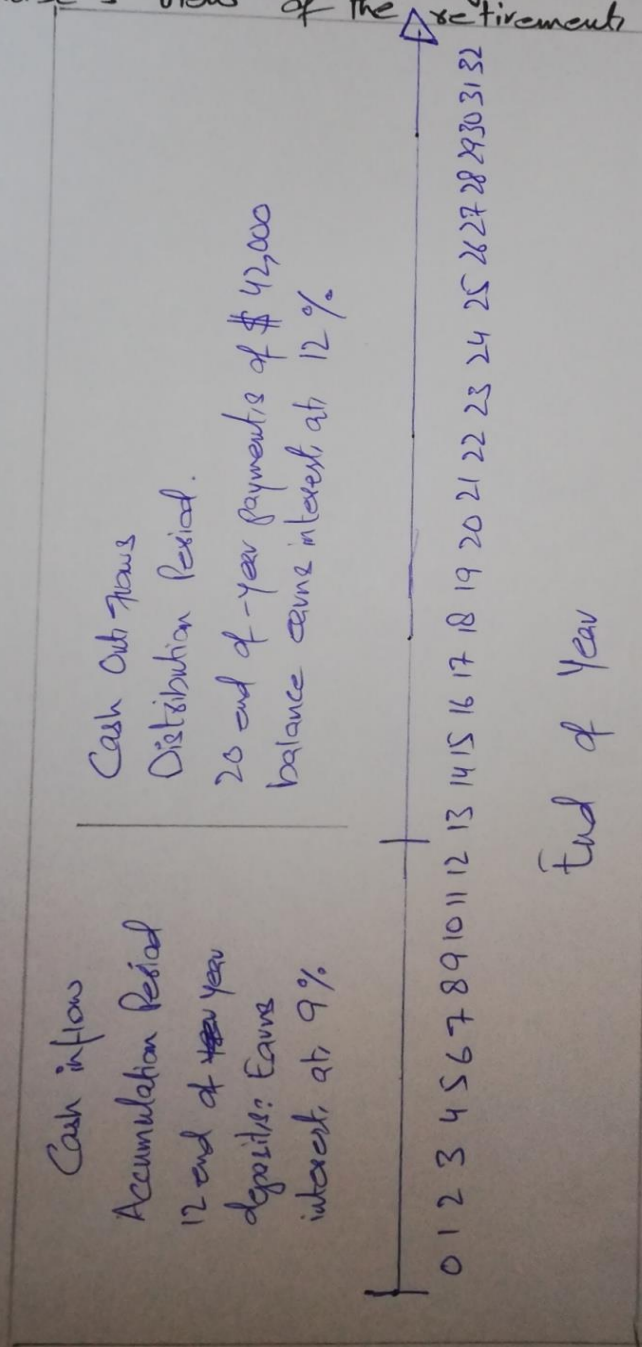 of the retirement
Cash inflow
Accumulation Period
12 end of year
deposits: Earns
interest at 9%
Cash Out flows
Distribution Period.
20 end of -year payments of $ 42,000
balance earns interest at 12%
0 1 2 3 4 5 6 7 8 9 10 11 12 13 14 15 16 17 18 19 20 21 22 23 24 25 26 27 28 29 30 31 32
End of Year